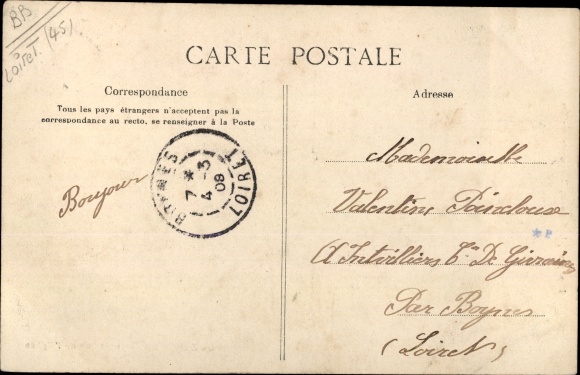 BB
Loiret (45)
CARTE POSTALE
Correspondance
Tous les pays étrangers n'acceptent pas la
correspondance au recto, se renseigner à la Poste
Adresse
BOYNES
7 * 4 -3 08
LOIRET
Bonjour
Mademoiselle
Valentine
A Intvilliers Cne De Givraines
Par Boynes
(Loiret)